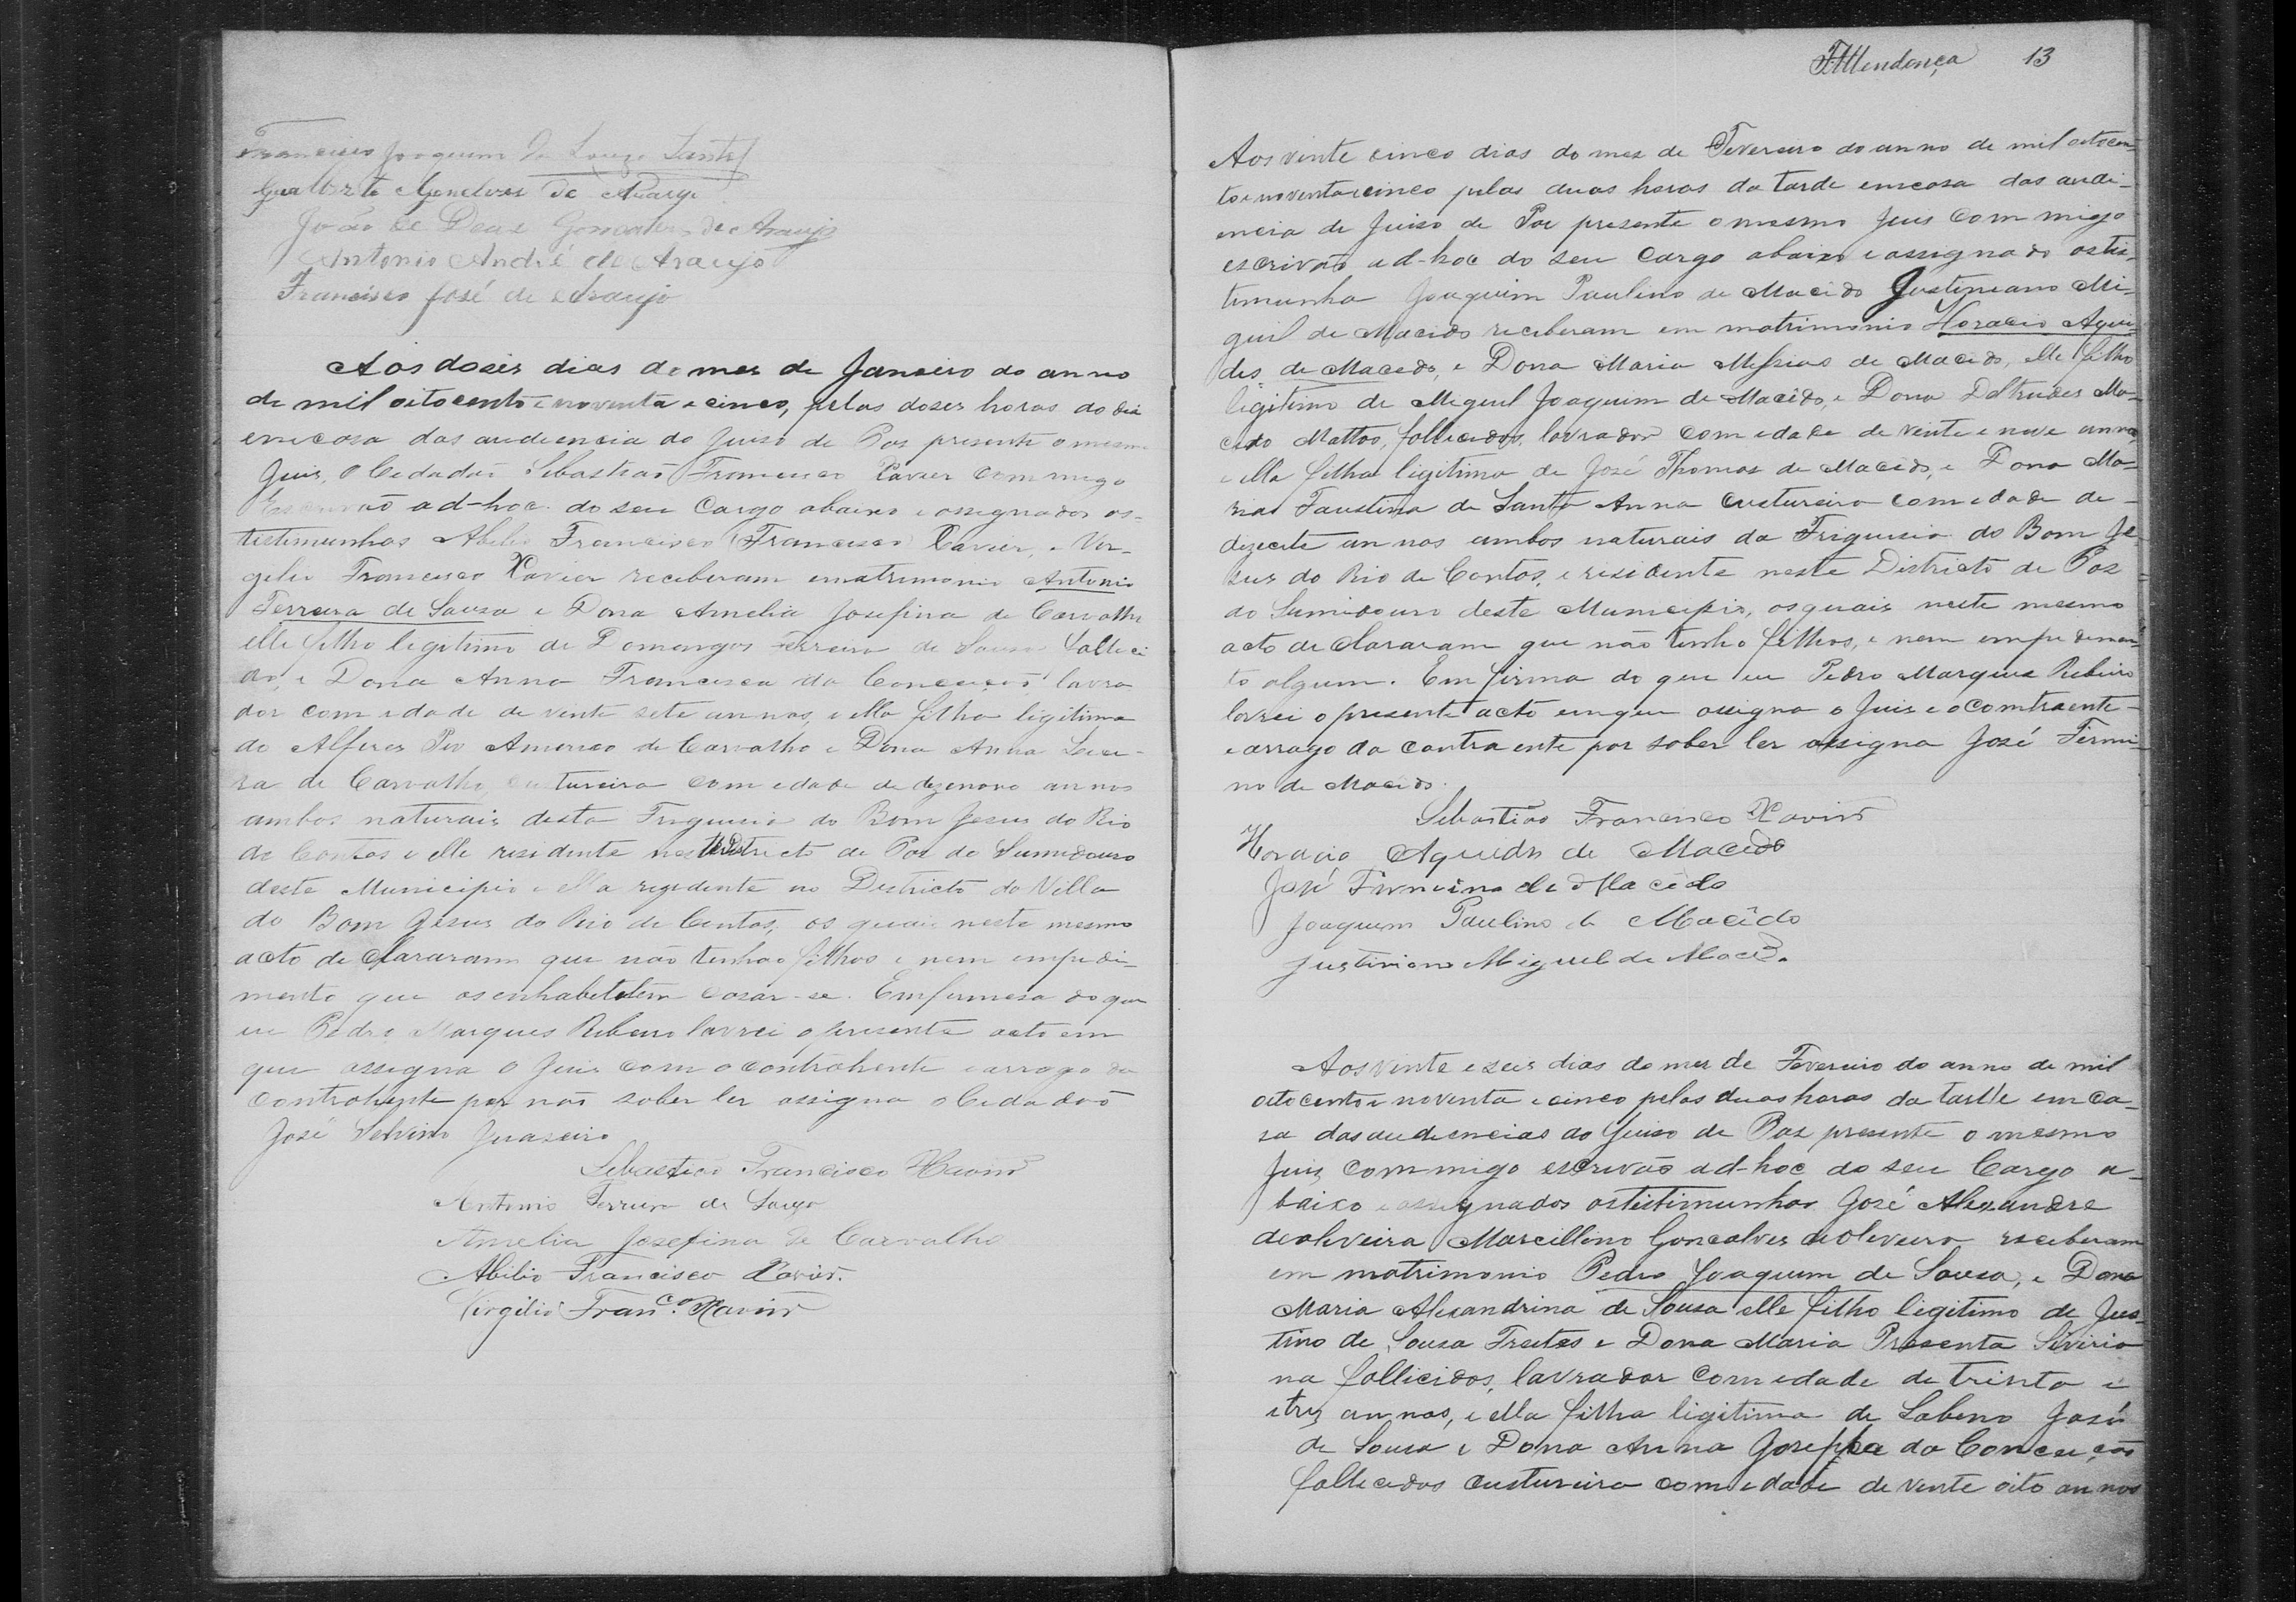 Francisco Joaquim de Souza Santos
João de Deus Goncalves de Araujo
Antonio André de Araujo
Francisco José de Araujo
Aos doses dias do mes de Janeiro do anno
de mil oitocento e noventa e cinco, pelas doses horas do dia
emcasa das audiencia do Juiso de Pas presente o mesmo
Juis, o Cidadão Sebastião Francisco Xavier commigo
Escrivão ad-hoc do seu Cargo abaixo e assignados as
testimunhas Abilio Francisco Francisco Xavier, e Ver-
gelio Francisco Xavier receberam ematrimonio Antonio
Ferreira de Sousa e Dona Amelia Josefina de Carvalho
elle filho legitimo de Domingos Ferreira de Sousa falleci
do, e Dona Anna Francisca da Conceição lavra
dor com idade de vente sete annos, e ella filha legitima
do Alferes Americo de Carvalho e Dona Anna
de Carvalho, custureira com edade de dezenove annos
ambos naturais desta Friguisia do Bom Jesus do Rio
de Contas e elle residente neste Districto de Pas do Sumidouro
deste Municipio e ella rezidente no Districto da Villa
do Bom Jesus do Rio de Contas, os quais neste mesmo
acto declararam que não tenhão filhos e nem empedi-
mento que casar-se. Emfirmesa do que
eu Pedro Marques Ribeiro lavrei o presente acto em
que assigna o Juis com o contrahente e arrogo da
contrahente por não saber ler assigna o Cidadão
José Selvino Juaseiro
Sebastião Francisco Xavier
Antonio Ferreira de Souza
Amelia Josefina de Carvalho
Abilio Francisco Xavier.
Virgilio Franc.co Xavier
Mendonça 13
Aos vinte cinco dias do mez de Fevereiro do anno de mil oitocen-
to e noventa e cinco pelas duas horas da tarde emcasa das audi-
encia de Juiso de Paz presente o mesmo Juis Com migo
escrivão ad-hoc do seu Cargo abaixo e assignado as tes-
timunha Joaquim Paulino de Macêdo Justiniano Mi-
guil de Macedo receberam em matrimonio Horacio Aque-
des de Macedo, e Dona Maria Messias de Macêdo, elle filho
legitimo de Meguel Joaquim de Macêdo, e Dona Deltrudes Ma-
cedo Mattos, fallicidos, lavrador com edade de vente e nove annos
e ella filha legitima de José Thomas de Macêdo, e Dona Ma-
ria Faustina de Santa Anna custureira com edade de
dezecete annos ambos naturais da Friguisia do Bom Je-
sus do Rio de Contas, e residente neste Districto de Paz
do Sumidouro deste Municipio, osquais neste mesmo
acto declararam que não tenhão filhos, e nem empedimen-
to algum. Em firma do que eu Pedro Marques Ribeiro
lavrei o presente acto emque assigna o Juis e o contraente
e arrogo da contraente por saber ler assigna José Firmi-
no de Macêdo.
Sebastião Francisco Xavier
Horacio Aquedes de Macêdo
José Firmino de Macêdo
Joaquim Paulino de Macêdo
Justiniano Miguel de Macêdo.
Aos vinte e seis dias do mes de Fevereiro do anno de mil
oitocento e noventa e cinco pelas duas horas da tarde em ca-
sa das audiencias do Juiso de Paz presente o mesmo
Juis Commigo escrivão ad-hoc do seu Cargo a-
baixo e assignados as testimunhas José Alexandre
de oliveira Marcellino Goncalves de Oliveira receberam
em matrimonio Pedro Joaquim de Sousa, e Dona
Maria Alexandrina de Sousa elle filho legitimo de Jus-
tino de Sousa Freitas e Dona Maria Presenta Siviria
na fallicidos, lavrador com edade de trinta e
e tres annos, e ella filha ligitima de Sabino José
de Sousa e Dona Anna Josepha da Conceição
fallicidos custureira com edade de vente oito annos